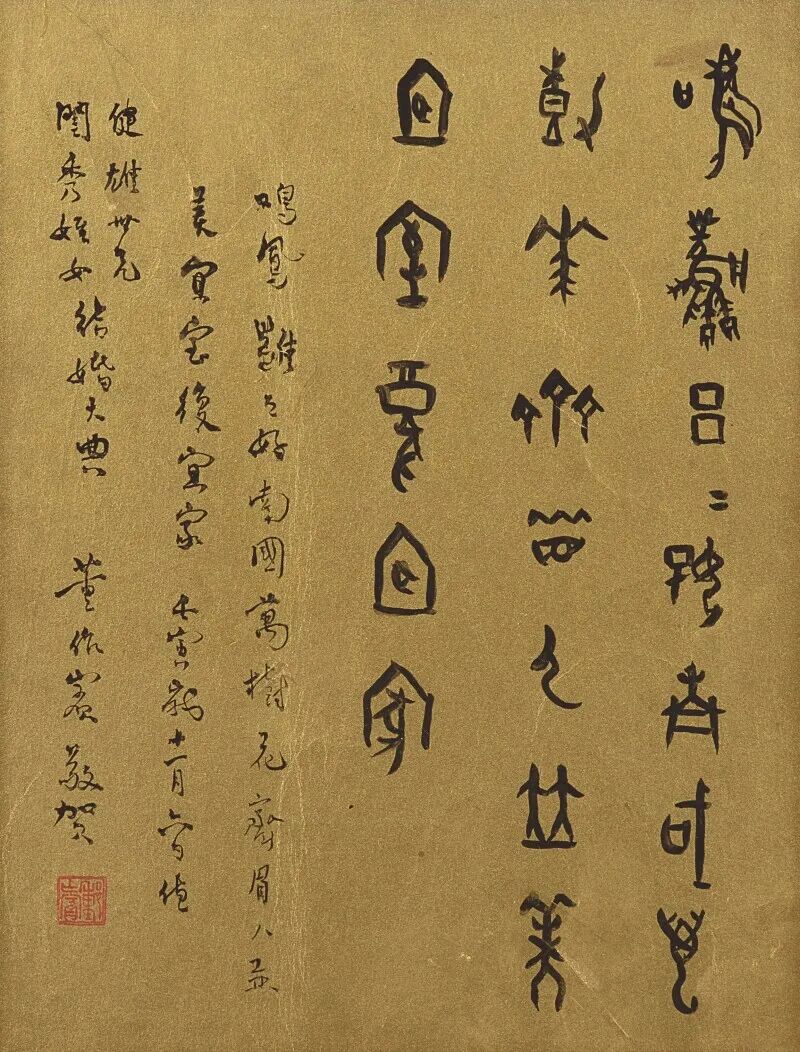 鳴鳳雝雝好南國萬
樹花齊眉人並美
宜室復宜家
鳴鳳雝雝好南國萬樹花齊眉人並
美宜室復宜家 壬寅歲十一月六日值
健雄世兄
閨秀姪女結婚大典 董作賓敬賀